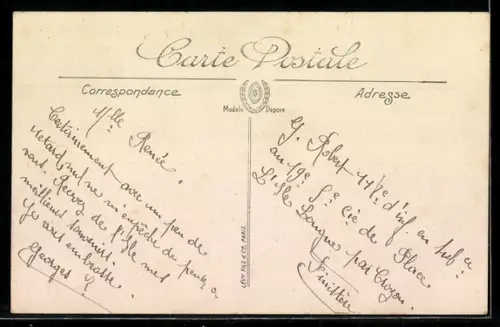 Carte Postale
Correspondance
Modèle Déposé
Adresse
Mlle Renée.
Certainement avec un peu de
retard, mais ne m'empêche de penser a
vous. Recevez de l'Isle mes
meilleurs souvenirs.
Je vous embrasse
Georges
G. Robert 117e d'inf. en sub ce
au 19e Cie de Place
L'Isle Longue par Crozon.
Finistère
LÉVY FILS & Cie, PARIS